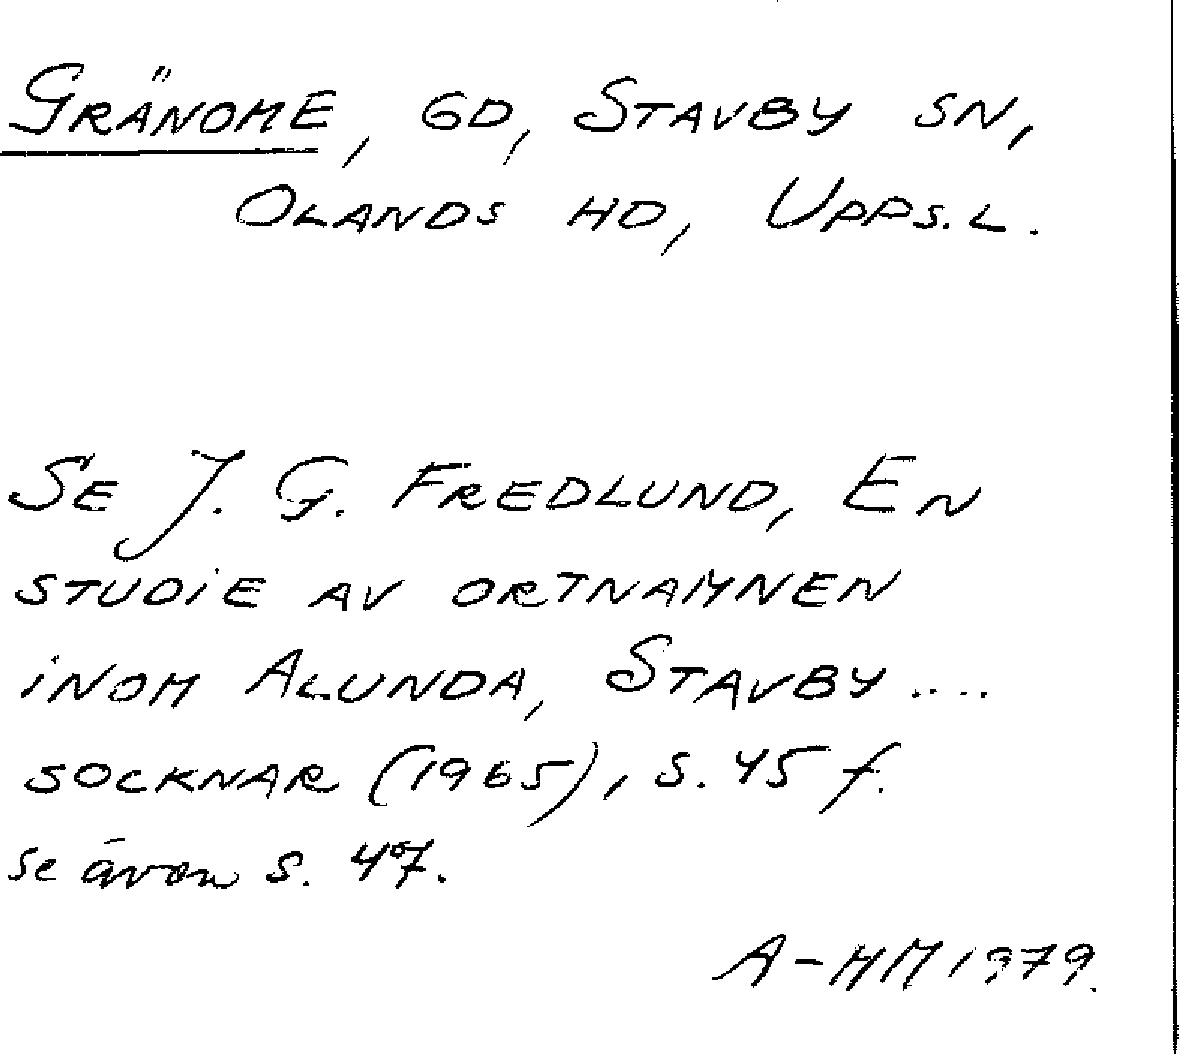 GRÄNOME, GD, STAVBY SN,
OLANDS HD, UPPS. L.
SE J. G. FREDLUND, EN
STUDIE AV ORTNAMNEN
INOM ALUNDA, STAVBY ....
SOCKNAR (1965), S. 45 f.
se även s. 47.
A-HM 1979.